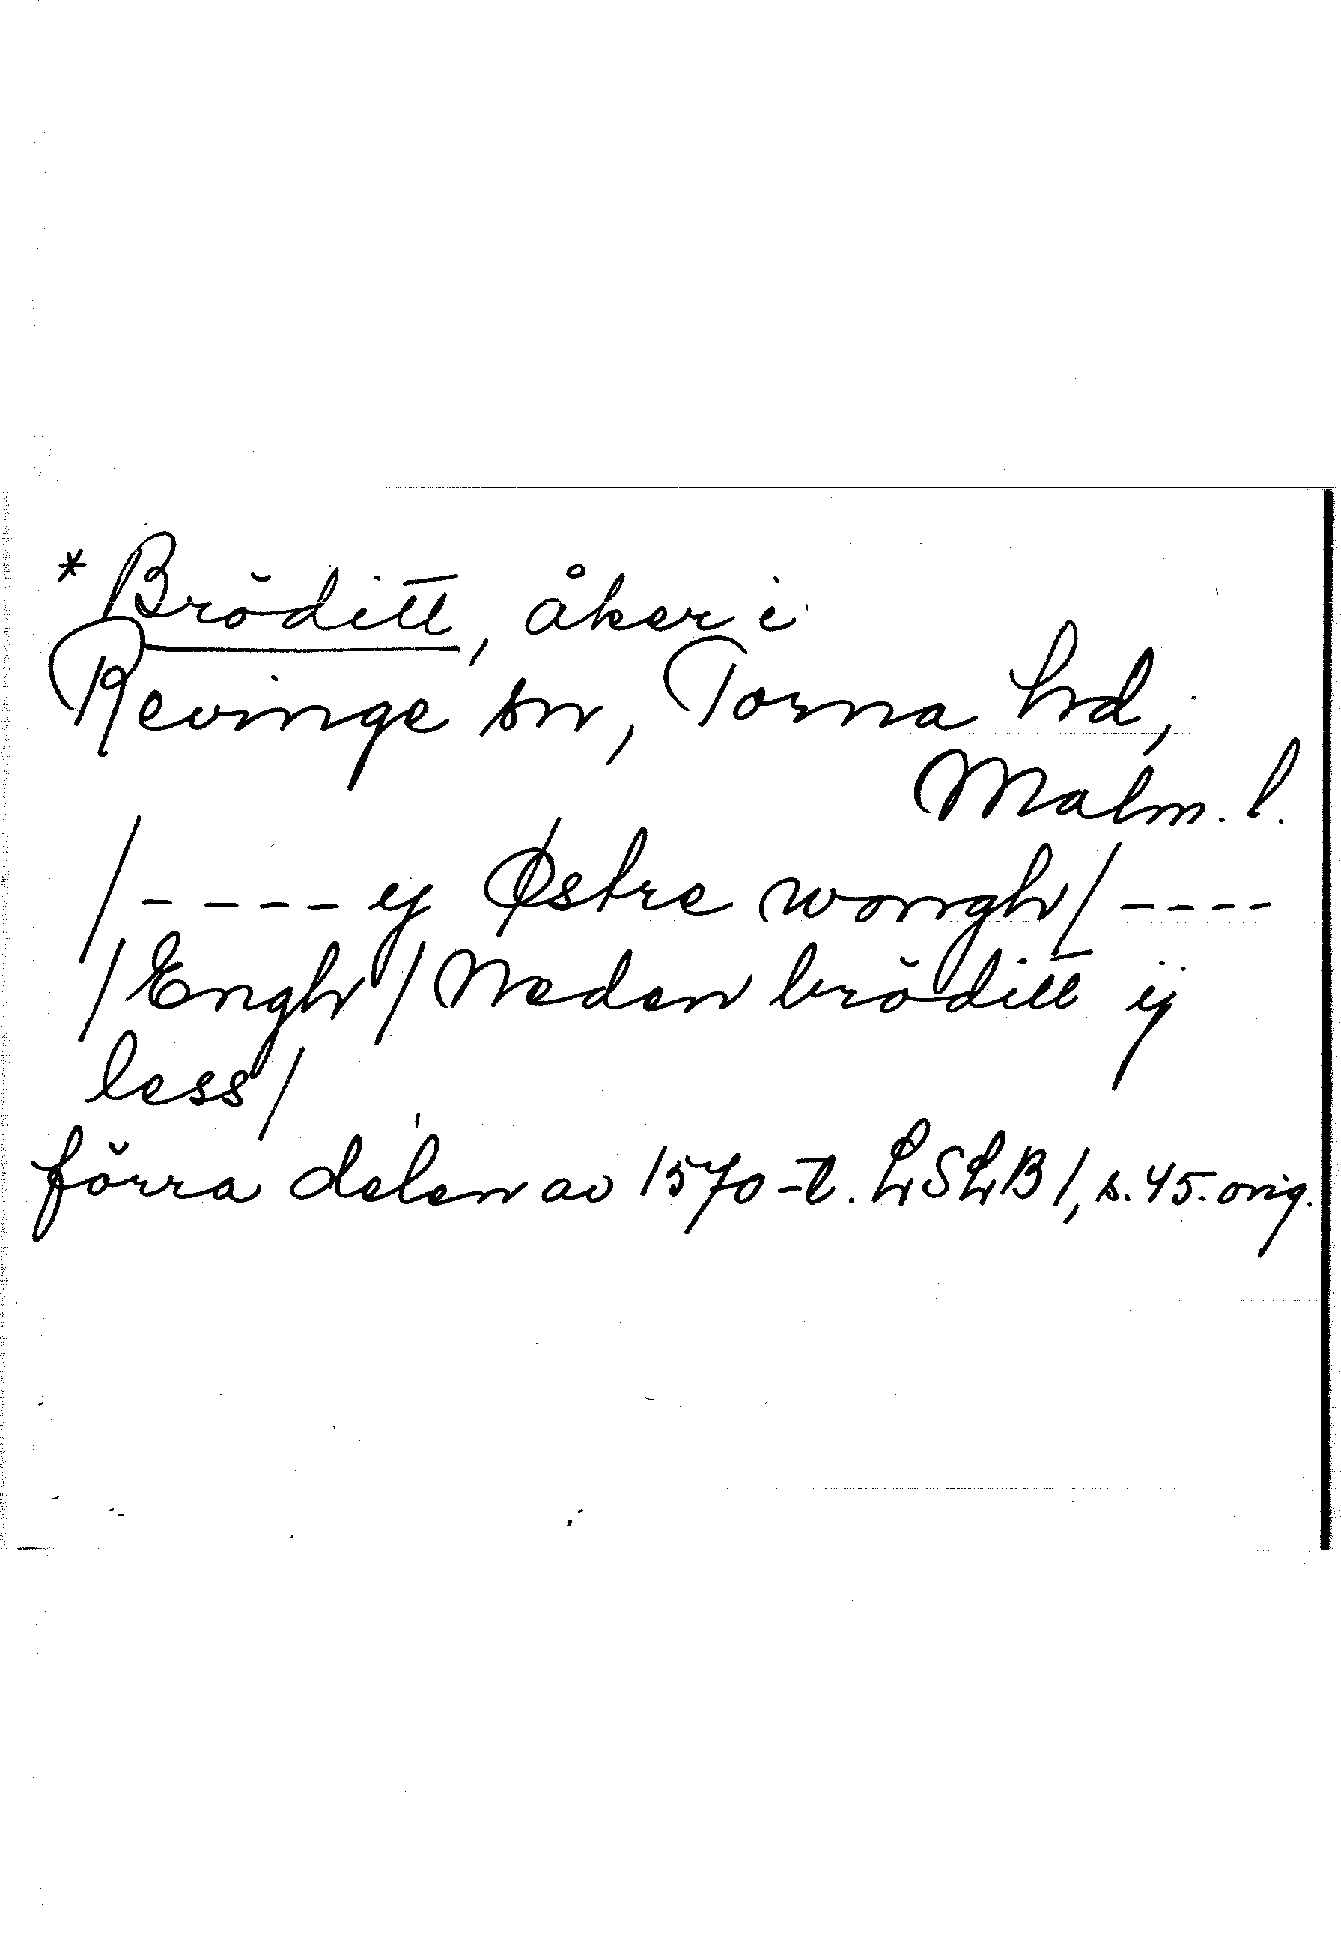 *Bröditt, åker i
Revinge sn, Torna hd,
Malm. l.
/- - - - ey Østre wongh/ - - - -
/Engh/ Neden bröditt ij
less/
förra delen av 1570-t. LSLB 1, s. 45. orig.